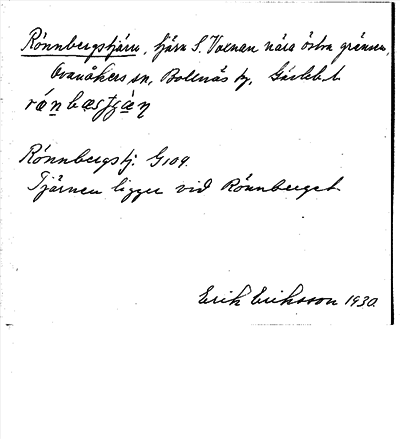 Rönnbergstjärn, tjärn S. Voxnan nära östra gränsen,
Ovanåkers sn, Bollnäs tg, Gävleb. l.
Rönnbergstj: G109.
Tjärnen ligger vid Rönnberget.
Erik Eriksson 1930.